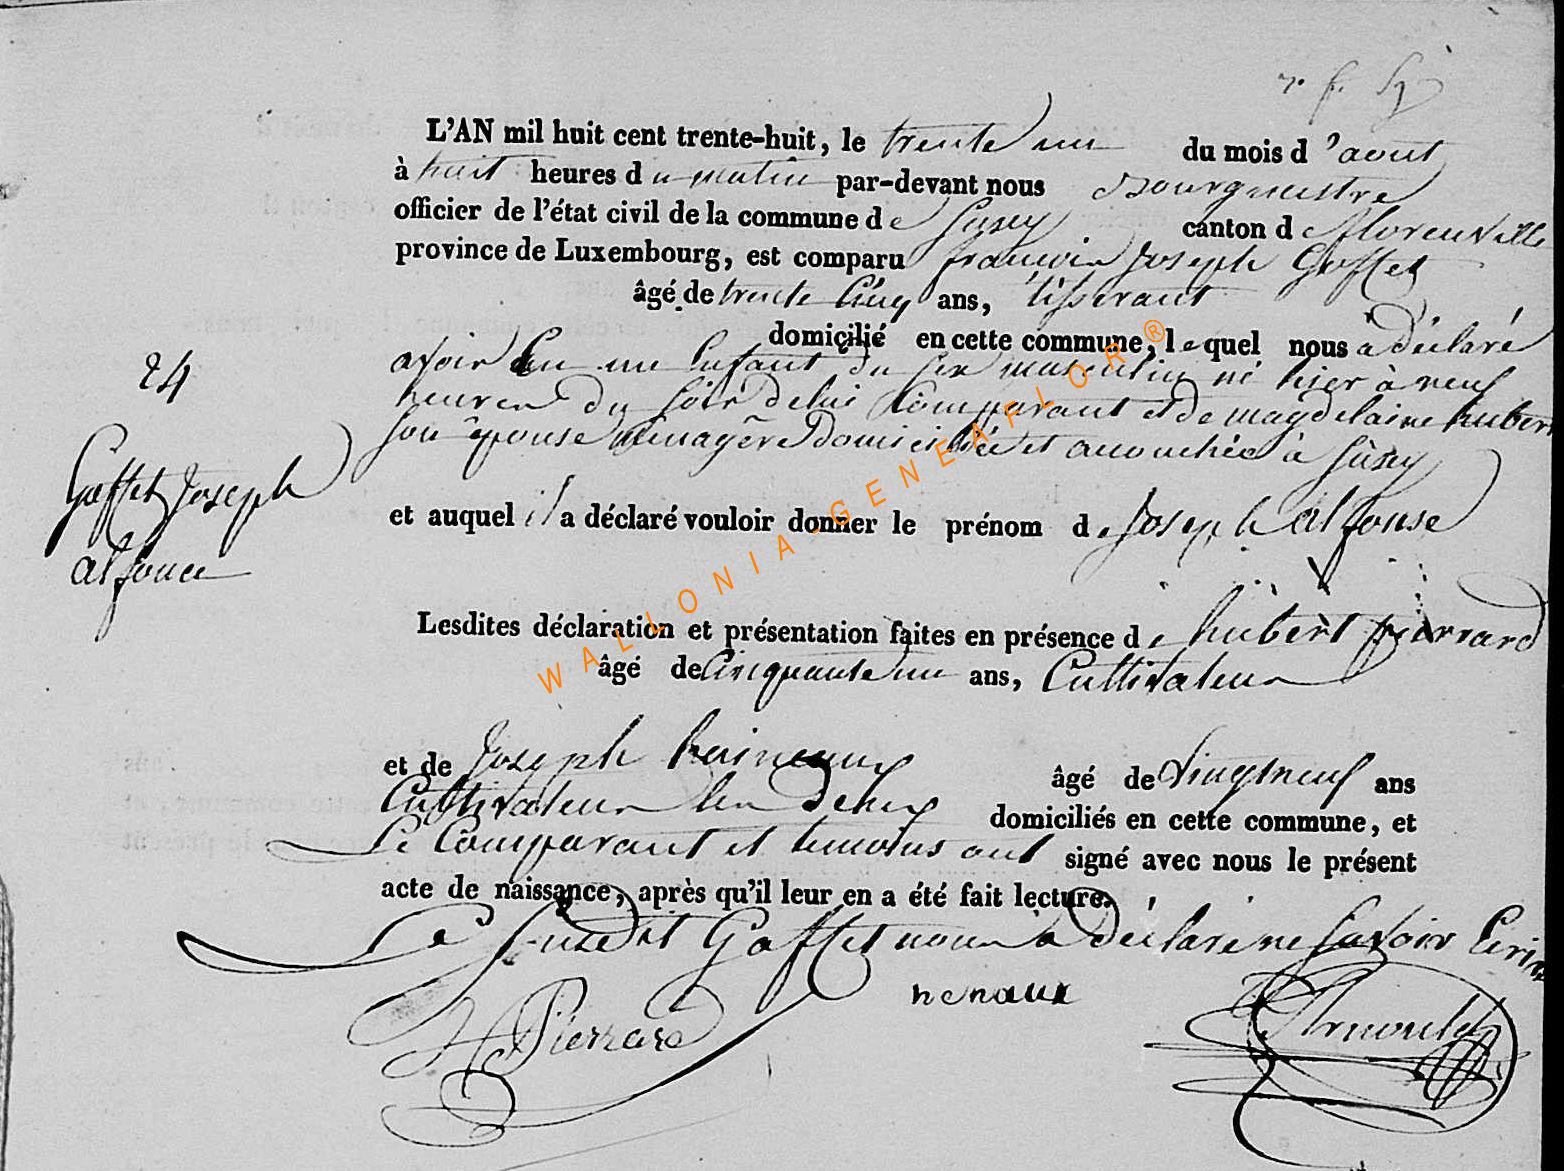 L'AN mil huit cent trente-huit, le trente un du mois d'aout
à huit heures du matin par-devant nous Bourgmestre
officier de l'état civil de la commune de Suxey canton de florenville
province de Luxembourg, est comparu francois Joseph Goffet
âgé de trente Cinq ans, tisserant
domicilié en cette commune, lequel nous a déclaré
avoir Eu un Enfant du sex masculin né hier à neuf
heures du soir de lui Comparant et de magdelaine hubert
son épouse ménagère domiciliée et accouchée à Suxey
24
Goffet Joseph
alfonce
et auquel il a déclaré vouloir donner le prénom de Joseph alfonse
Lesdites déclaration et présentation faites en présence de hubert pierrard
âgé de Cinquante un ans, Cultivateur
et de Joseph heineaux âgé de Vingt neuf ans
Cultivateur les deux domiciliés en cette commune, et
Le Comparant et temoins ont signé avec nous le présent
acte de naissance, après qu'il leur en a été fait lecture.
Le susdit Goffet nous a déclaré ne savoir Ecrire
henaux
H Pierrard
Arnould
WALLONIA-GENEAFLOR®